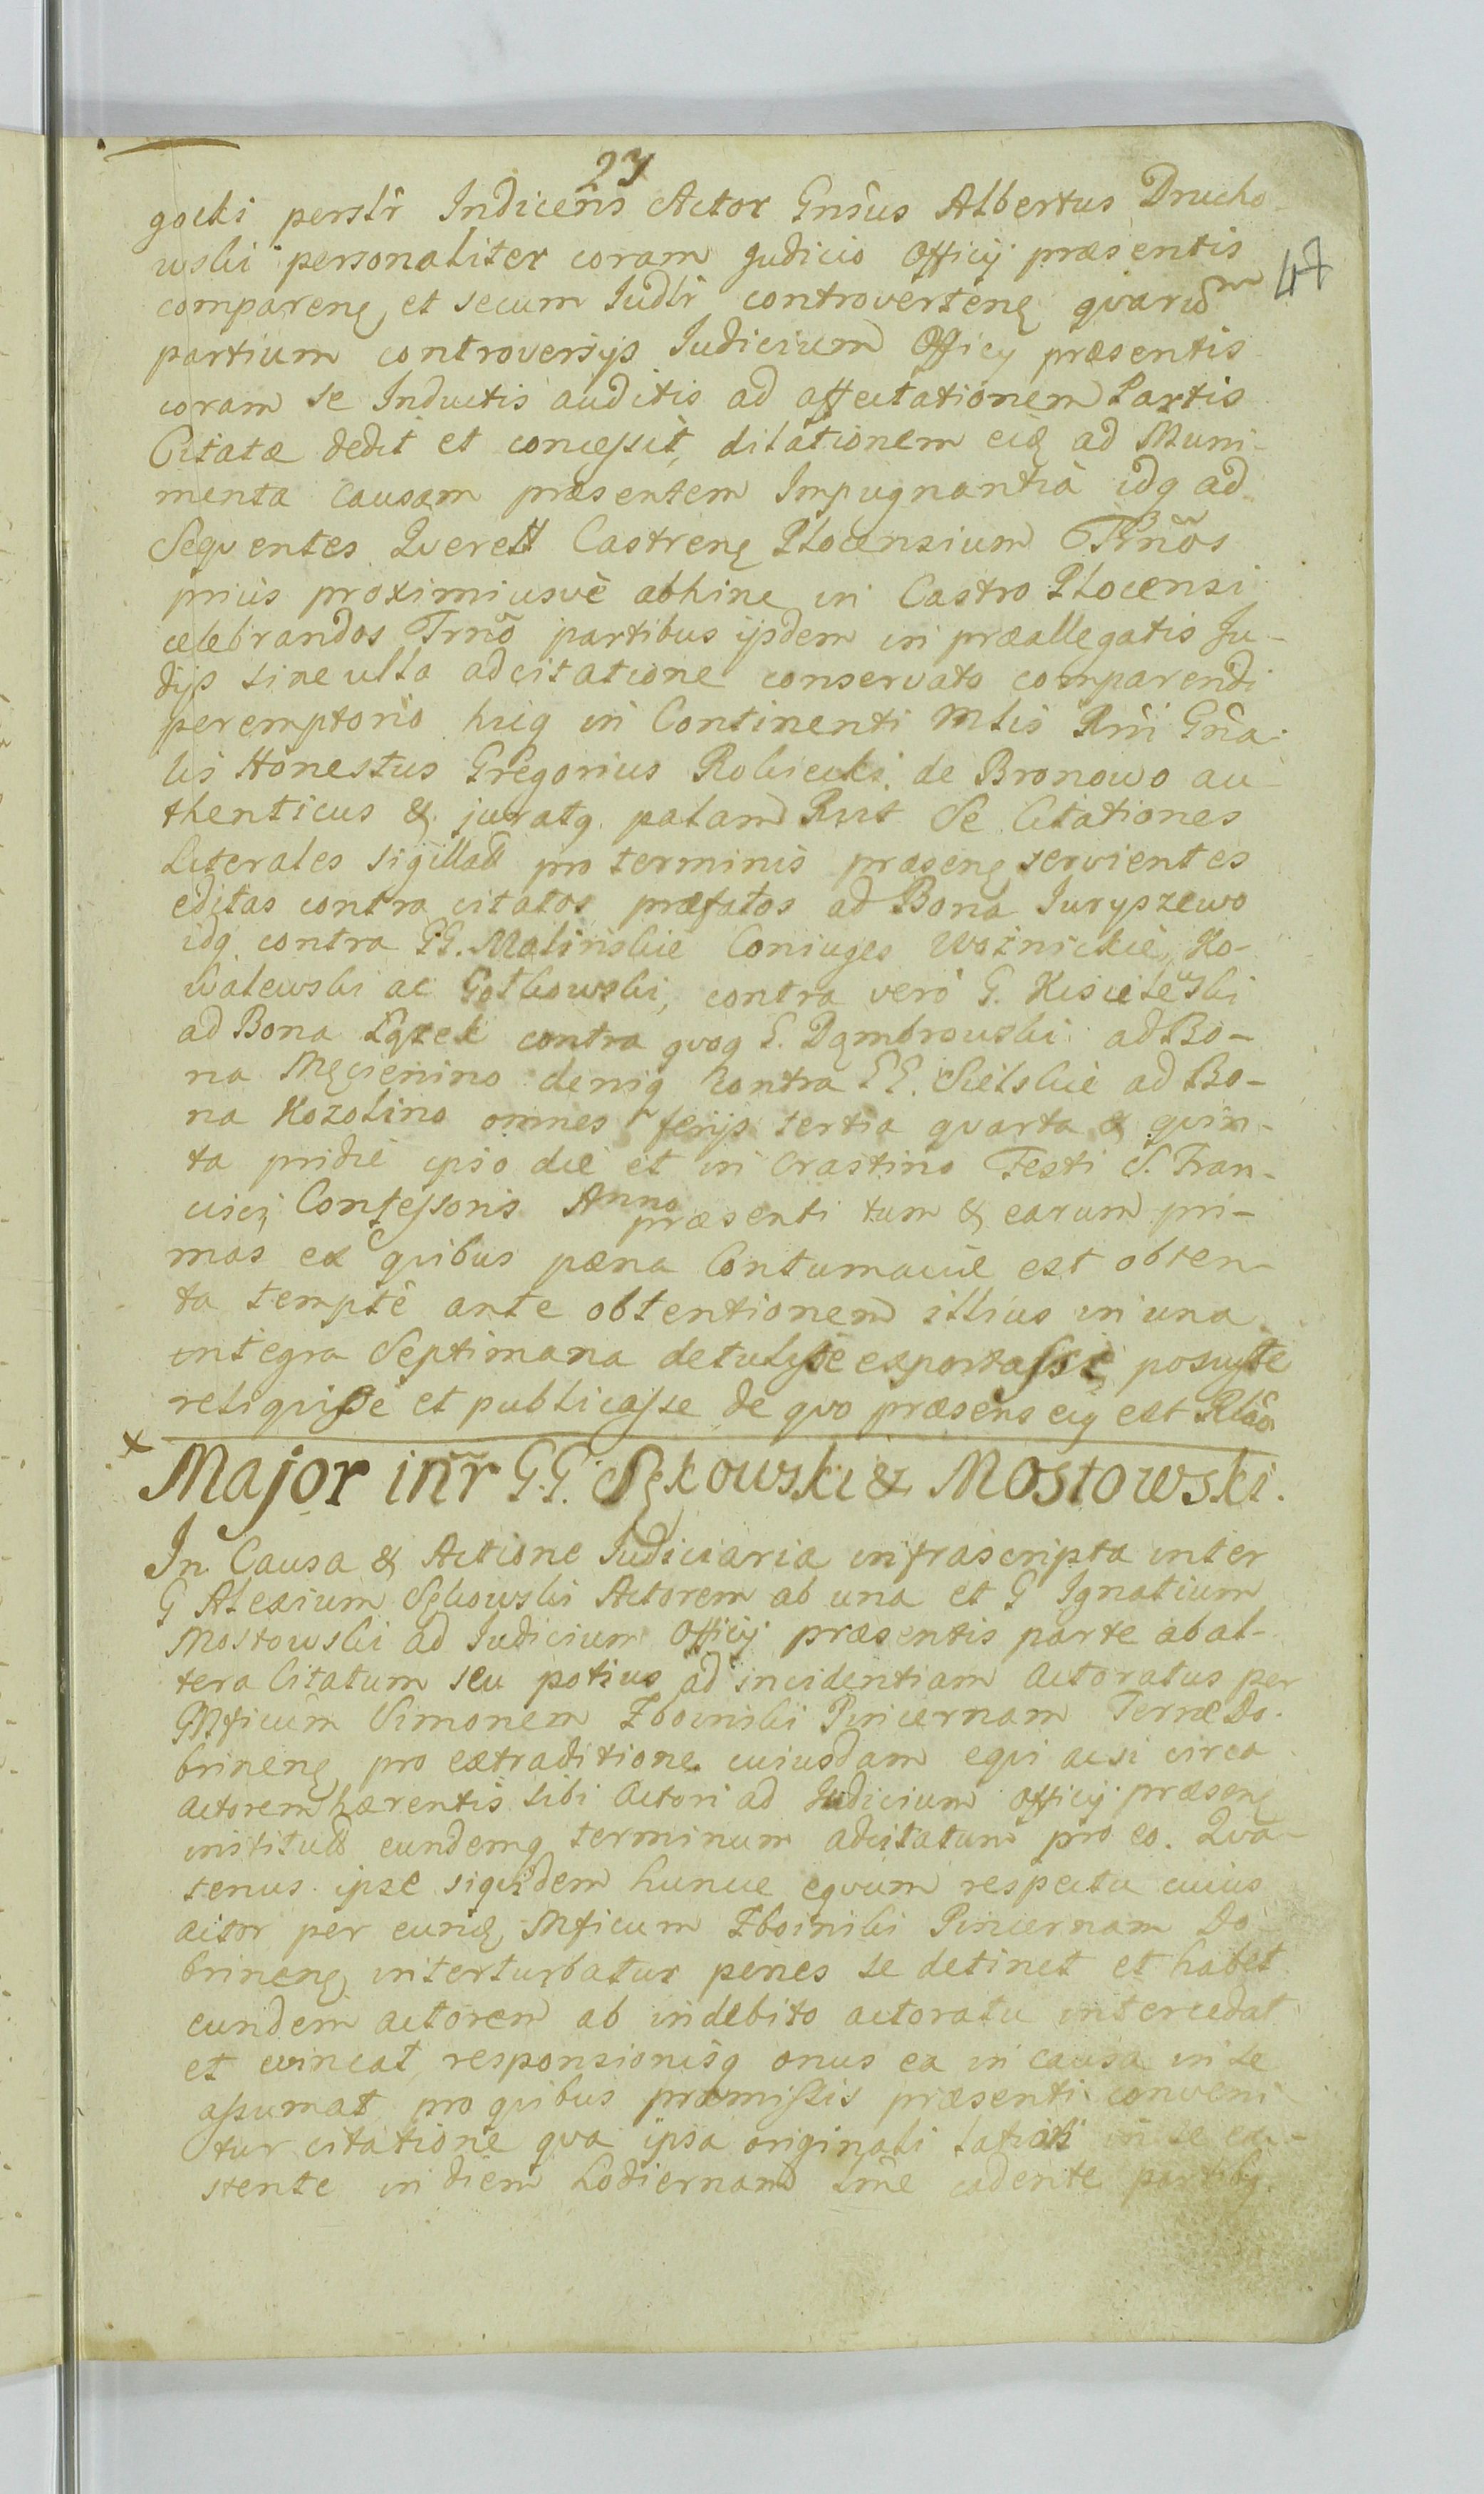 23
gocki perslr Indicens Actor Gnsus Albertus Drucho-
wski personaliter coram Judicio Officij præsentis
47
comparenę et secum Iudlr controvertenę qvarum
partium controversijs Iudicium Officij præsentis
coram se Inductis auditis ad affectationem Partis
Citatæ dedit et concessit, dilationem eię ad Muni-
menta causam præsentem Impugnantia idq ad
Seqventes Qverell Castrenę Plocensium Trños
prius proximiusvè abhinc in Castro Plocensi
celebrandos Trño partibus ijsdem in præallegatis Ju-
dijs sine ulla adcitatione conservato comparendi
peremptorio huig in Continenti Mlis Rni Gña-
lis Honestus Gregorius Robicki de Bronowo au-
thenticus & juratq palam Rvit Se Citationes
Literales sigillatt pro terminis præsenę servientes
editas contra citatos præfatos ad Bona Juryszewo
idq contra GG. Malinskie Coniuges Woźnickie, Ko-
walewski ac Gołkowski, contra verò G. Kisielewski
ad Bona Łązek contra qvoq G. Dąmbrowski ad Bo-
na Męcienino deniq contra GG. Sielskie ad Bo-
na Kozolino omnes ferijs tertia qvarta & qvin-
ta pridie ipso die et in Crastino Festi S. Fran-
cisci Confessoris Anno præsenti tum & earum pri-
mas ex qvibus pæna Contumaciæ est obten-
ta temptè ante obtentionem illius in una
integra Septimana detulisse exportasse posuisse
reliqvisse et publicasse de qvo præsens eiq est Rlão
x Major inr̃ GG. Sękowski & Mostowski.
In Causa & Actione Iudiciaria infrascripta inter
G Alexium Sękowski Actorem ab una et G Ignatium
Mostowski ad Iudicium Officij præsentis parte ab al-
tera Citatum seu potius ad incidentiam actoratus per
GMficum Simonem Zboinski Pincernam Terræ Do-
brinenę pro extraditione cuiusdam eqvi acsi circa
actorem hærentis sibi Actori ad Judicium Officij præsenę
institutt eundemq terminum adcitatum pro eo. Qva-
tenus ipse siqvidem huncce eqvum respectu cuius
actor per eunę Mficum Zboinski Pincernam Do-
brinenę interturbatur penes se detinet et habet
eundem actorem ab indebito actoratu intercedat
et evincat, responsionisq onus ea in causa in se
assumat pro qvibus præmissis præsenti conveni-
tur citatione qva ipsa originali in se ex-
stente in diem hodiernam cadente partibq